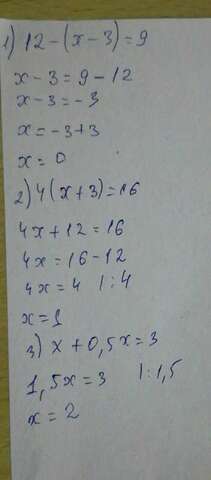 1) 12-(x-3)=9
x-3=9-12
x-3=-3
x=-3+3
x=0
2) 4(x+3)=16
4x+12=16
4x=16-12
4x=4 |:4
x=1
3) x+0,5x=3
1,5x=3 |:1,5
x=2